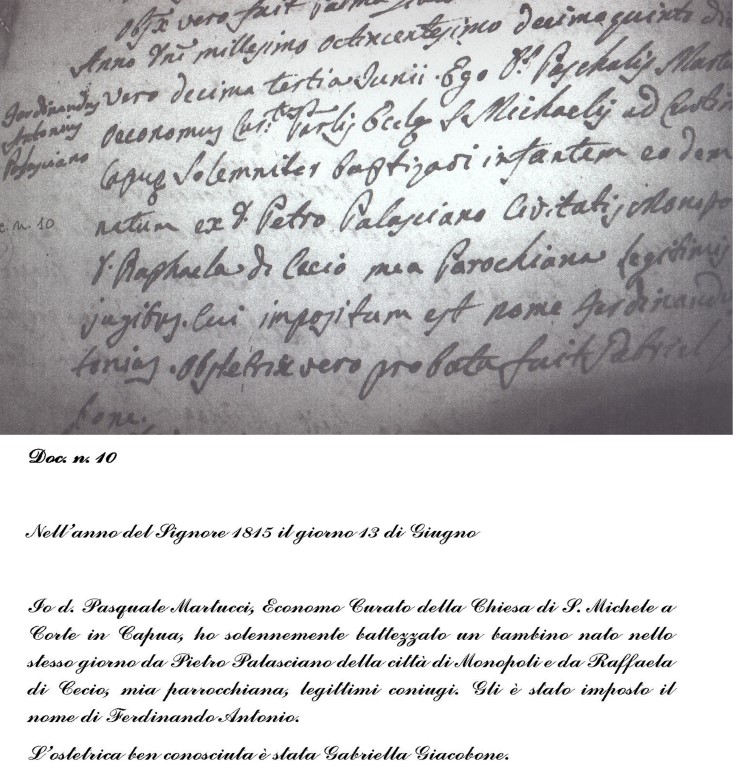 Obstx vero fuit
Anno Dni millesimo octincentesimo decimoquinto die
Ferdinandus
Antonius
Palasciano
vero decima tertia Junii. Ego D. Paschalis Martu
Oeconomus Cur. Parlis Eccle S. Michaelis ad Curtim
Capuæ Solemniter baptizavi infantem eodem
c. n. 10
natum ex D. Petro Palasciano Civitatis Monopo
D. Raphaela di Cecio mea Parochiana legitimis
jugibus. Cui impositum est nome Ferdinandu
tonius. Obstetrix vero probata fuit Gabriel
bone.
Doc. n. 10
Nell'anno del Signore 1815 il giorno 13 di Giugno
Io d. Pasquale Martucci, Economo Curato della Chiesa di S. Michele a
Corte in Capua, ho solennemente battezzato un bambino nato nello
stesso giorno da Pietro Palasciano della città di Monopoli e da Raffaela
di Cecio, mia parrocchiana, legittimi coniugi. Gli è stato imposto il
nome di Ferdinando Antonio.
L'ostetrica ben conosciuta è stata Gabriella Giacobone.